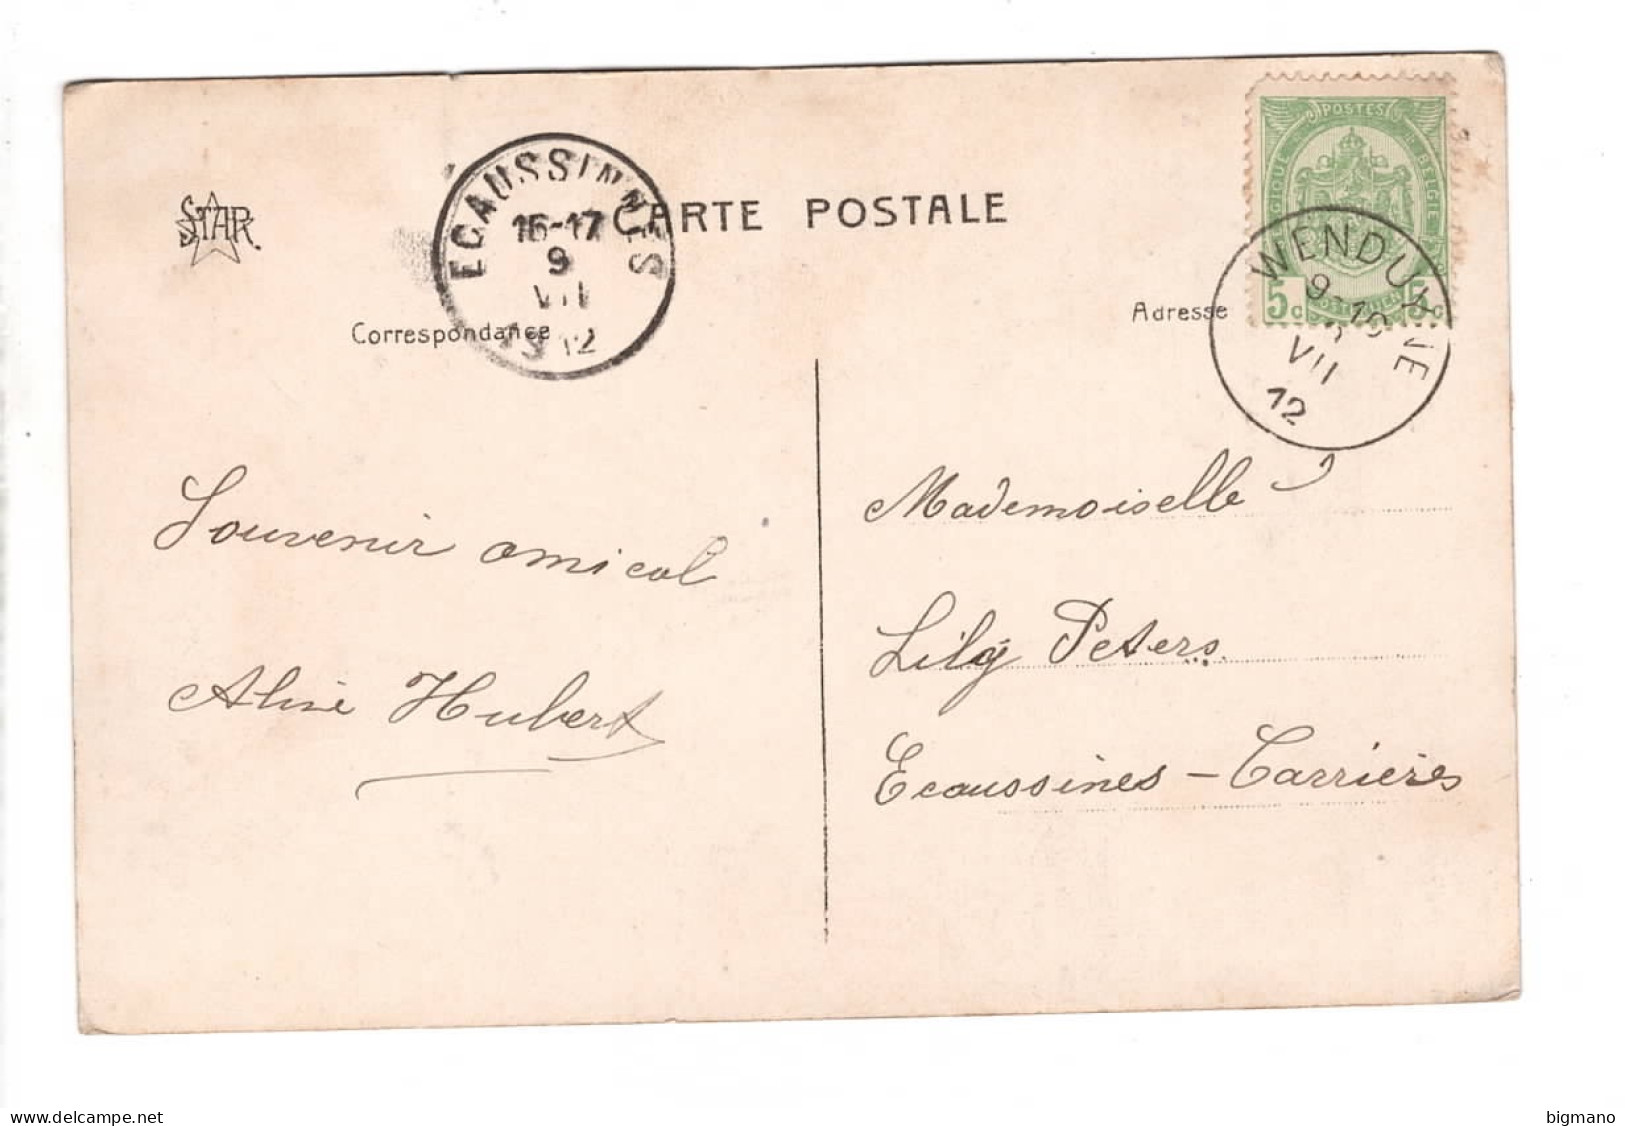 STAR.
ECAUSSINNES
16-17
9
VII
12
CARTE POSTALE
POSTES
5c 5c
WENDUYNE
9-10
VII
12
Correspondance
Adresse
Souvenir amical
Aline Hubert
Mademoiselle
Lily Peters
Ecaussines - Carrières
delcampe.net
bigmano